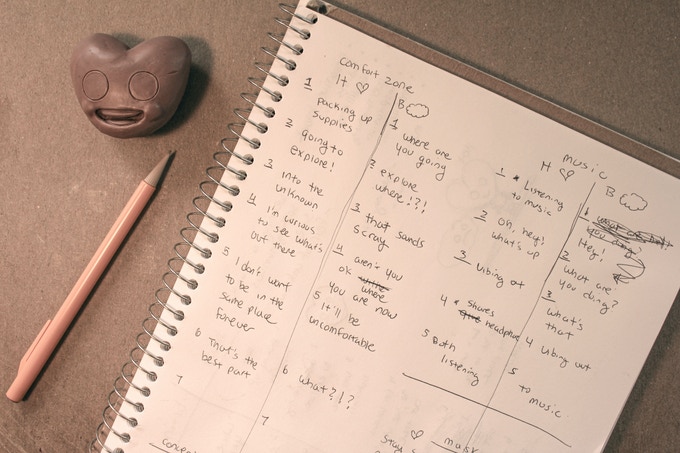 comfort zone
H
1 packing up
supplies
2 going to
explore!
3 into the
unknown
4 I'm curious
to see what's
out there
5 I don't want
to be in the
same place
forever
6 That's the
best part
7
B
1 where are
you going
2 explore
where!?!
3 that sands
scray
4 aren't you
ok where
you are now
5 It'll be
uncomfortable
6 what?!?
7
music
H
1 Listening
to music
2 oh, hey!
what's up
3 vibing out
4 shares
headphone
5 Both
listening
B
1
Hey!
2 what are
you doing?
3 what's
that
4 vibing out
5 to
music
stay